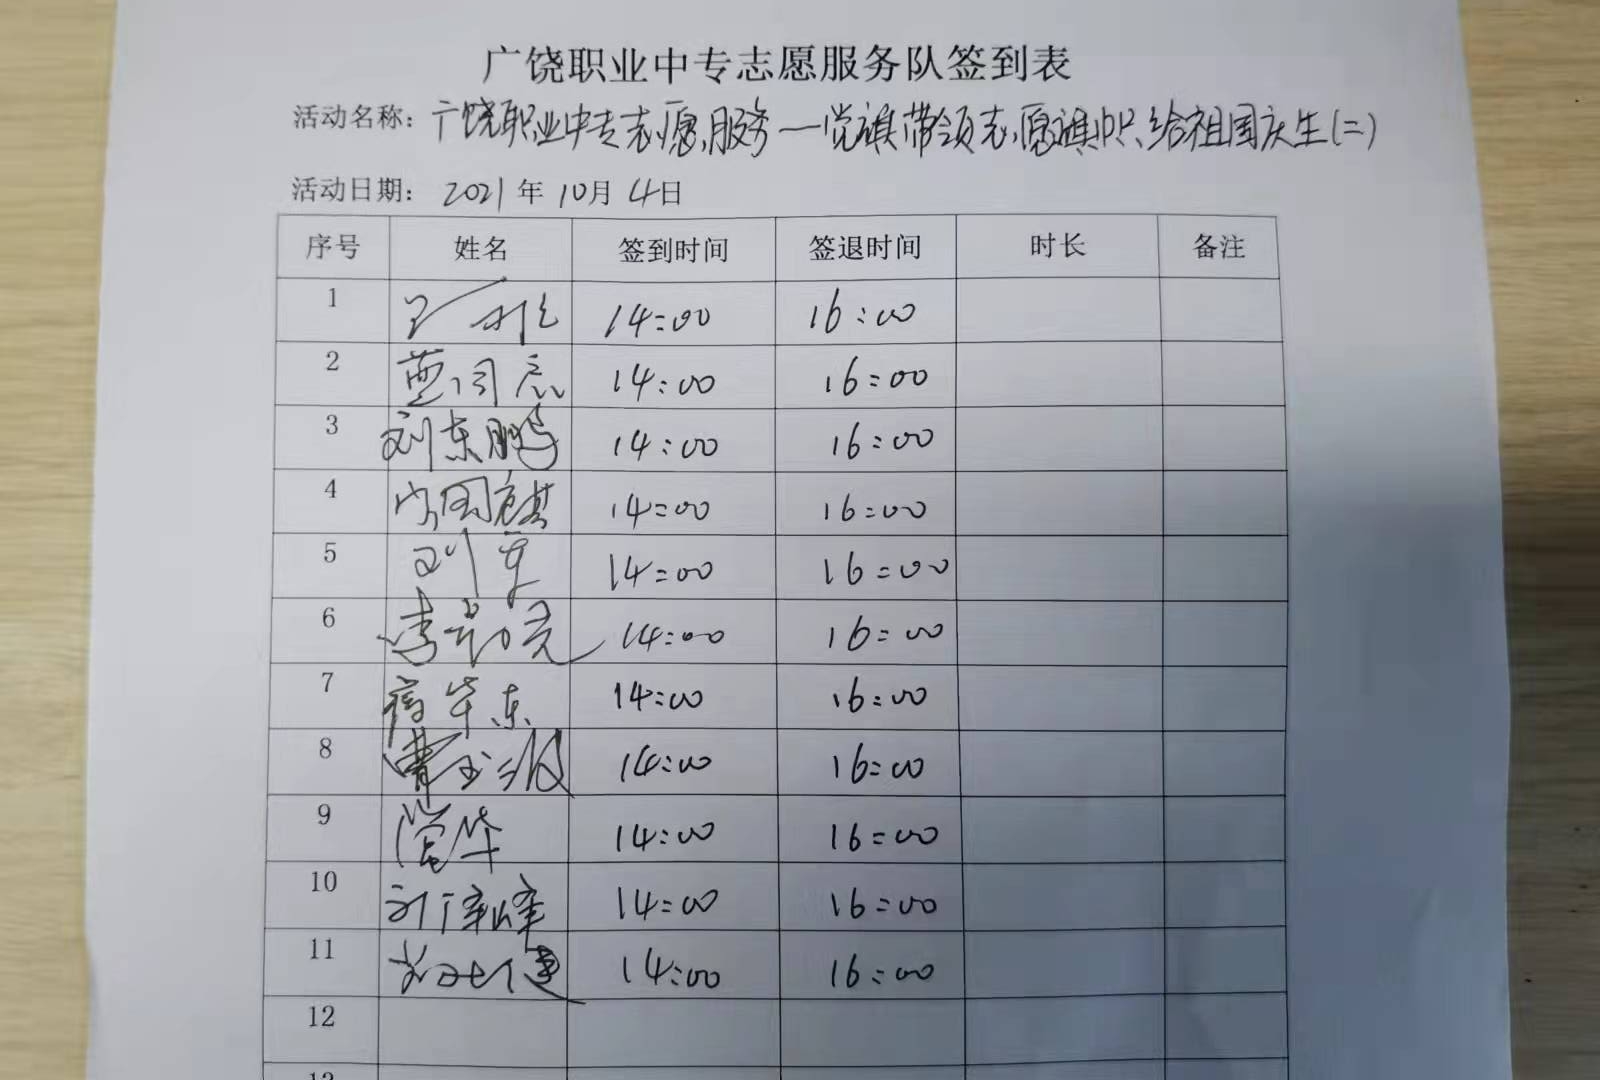 广饶职业中专志愿服务队签到表
活动名称：广饶职业中专志愿服务—党旗带领志愿旗帜给祖国庆生(二)
活动日期： 2021 年 10月 4日
序号 姓名 签到时间 签退时间 时长 备注
1 14:00 16:00
2 14:00 16:00
3 刘东鹏 14:00 16:00
4 14:00 16:00
5 14:00 16:00
6 14:00 16:00
7 14:00 16:00
8 14:00 16:00
9 14:00 16:00
10 14:00 16:00
11 14:00 16:00
12